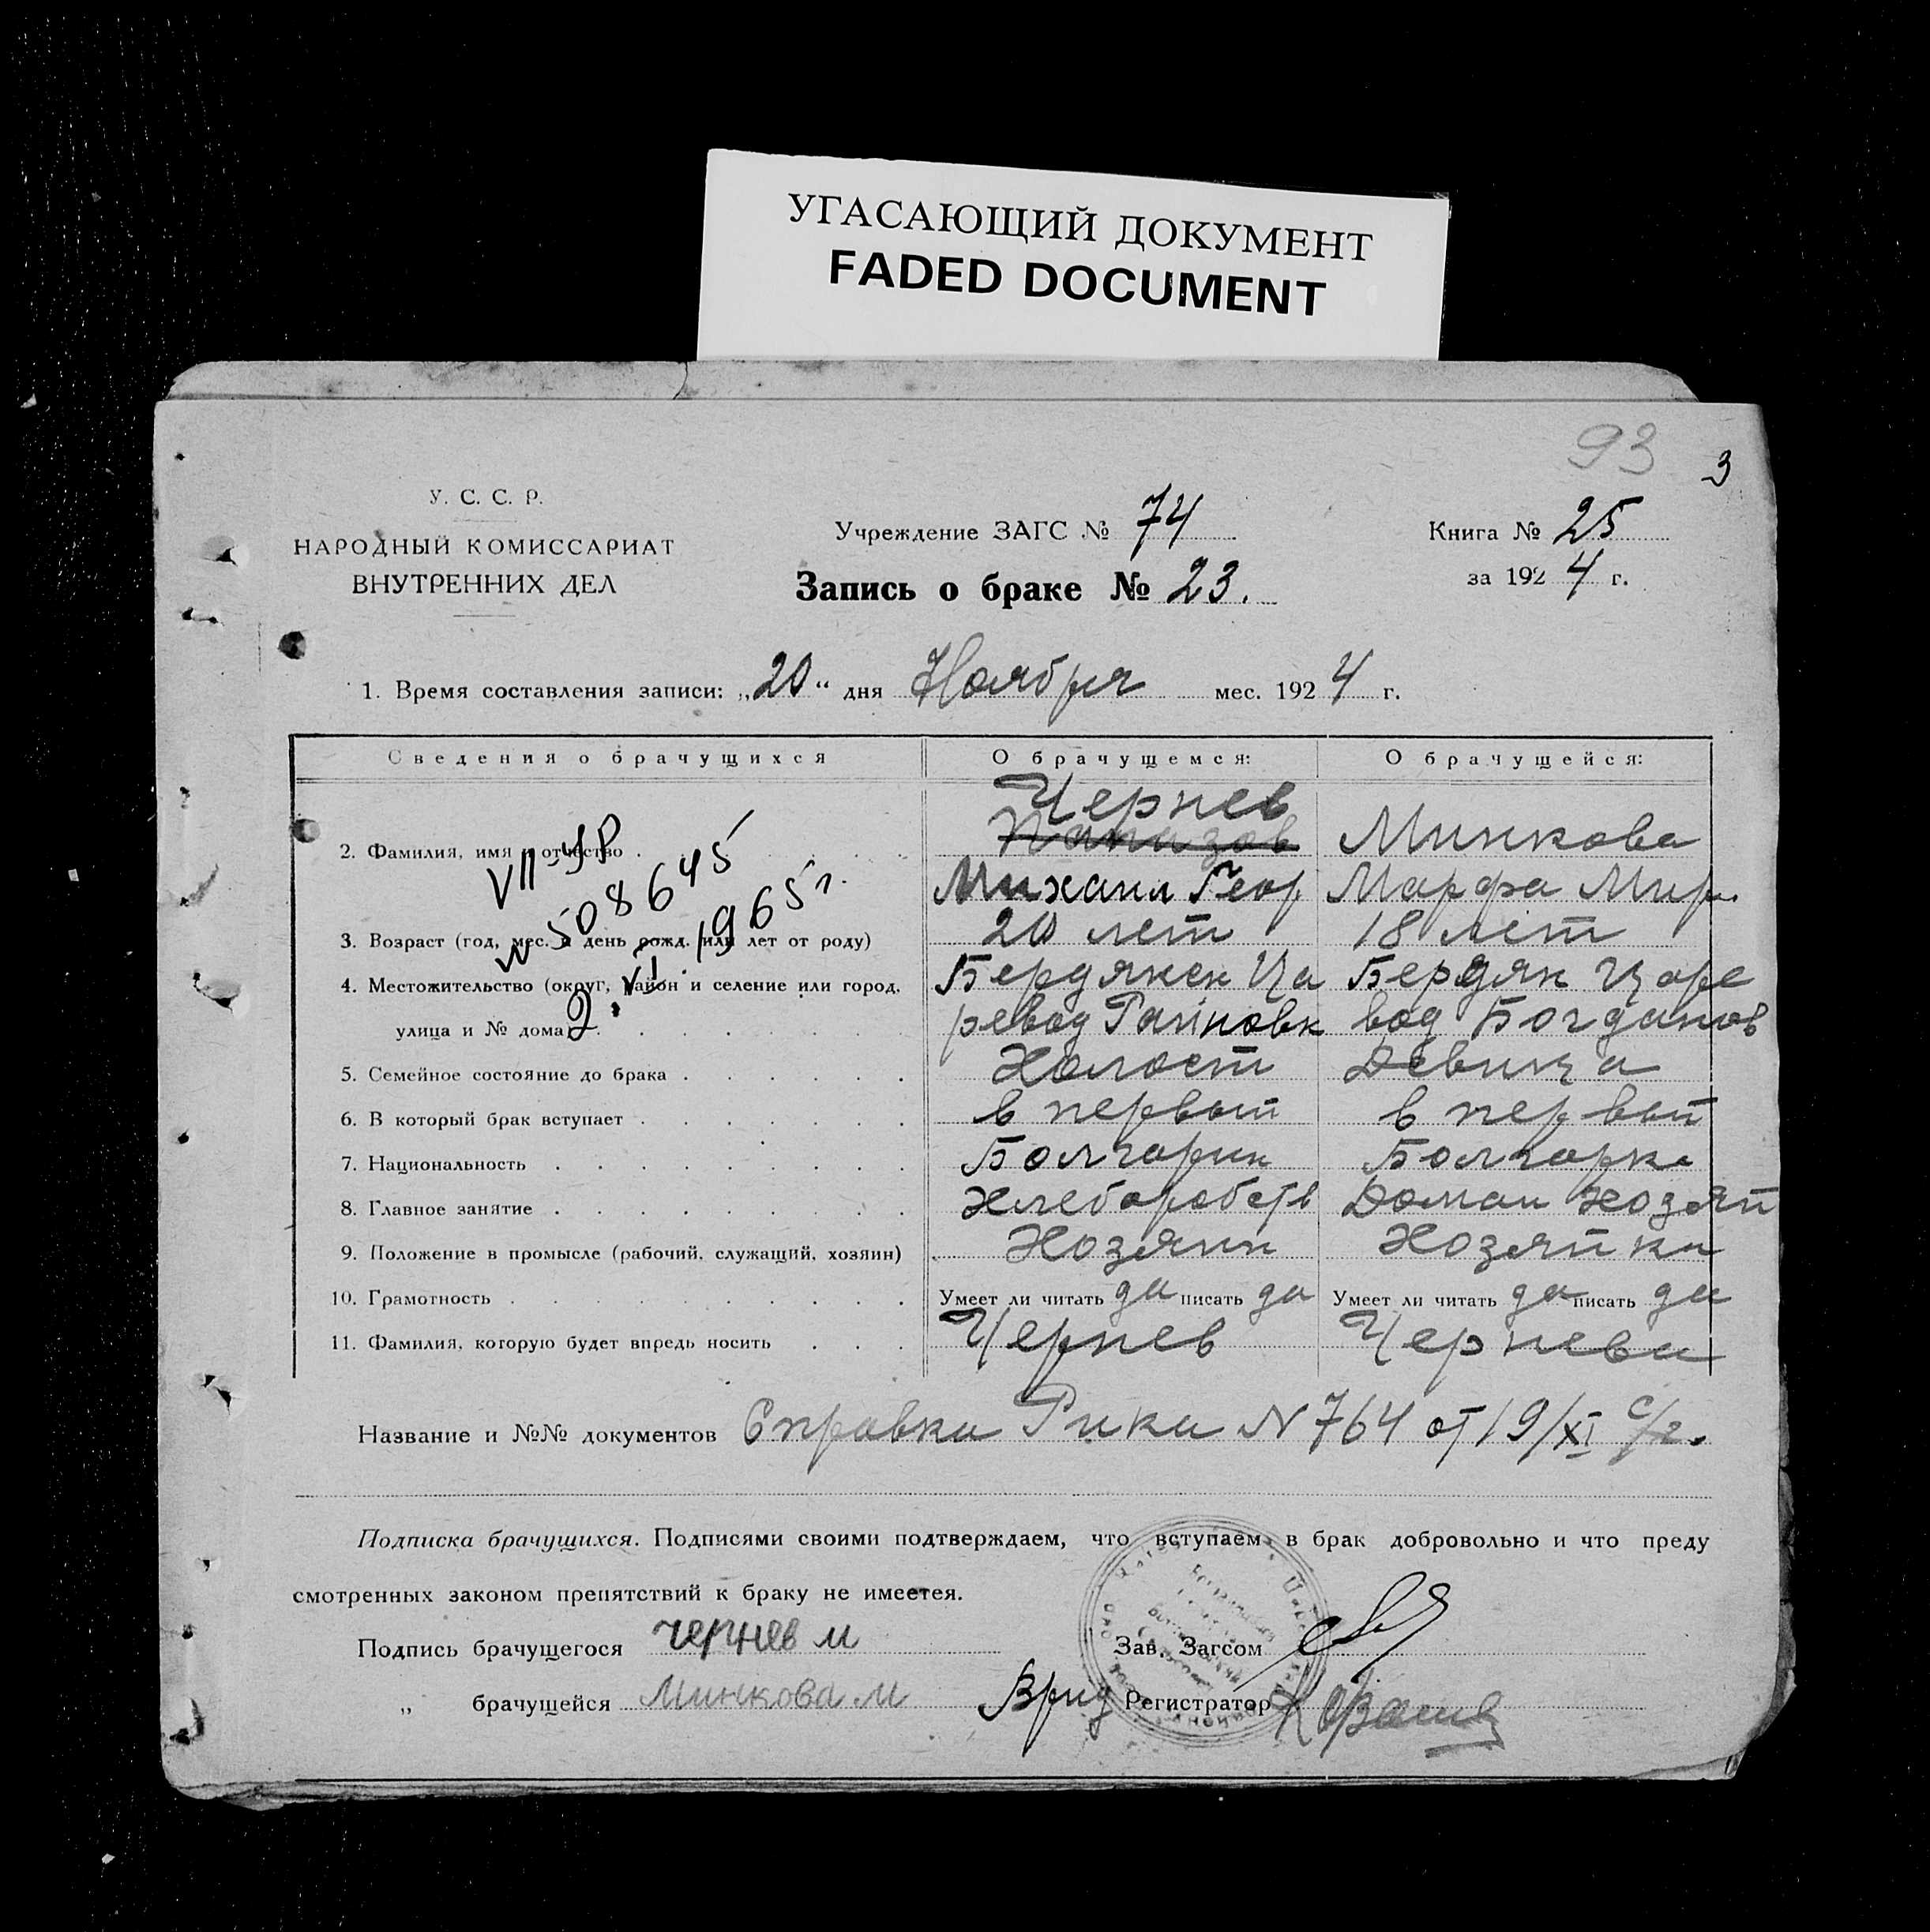 УГАСАЮЩИЙ ДОКУМЕНТ
FADED DOCUMENT
93 3
У. С. С. Р.
НАРОДНЫЙ КОМИССАРИАТ
ВНУТРЕННИХ ДЕЛ
Учреждение ЗАГС № 74
Запись о браке № 23.
Книга № 25
за 1924 г.
1. Время составления записи: „20“ дня Ноября мес. 1924 г.
Сведения о брачущихся О брачущемся: О брачущейся:
Чернев
2. Фамилия, имя и отчество Минкова
Михаил Геор Марфа Мир.
VII ЯР
№ 508645
2. VI. 1965 г.
3. Возраст (год, мес. и день рожд. или лет от роду) 20 лет 18 лет
4. Местожительство (округ, район и селение или город, Бердянск Ца Бердян Царе
улица и № дома) ревод Райновк вод Богданов
5. Семейное состояние до брака Холост Девица
6. В который брак вступает в первый в первый
7. Национальность Болгарин Болгарка
8. Главное занятие Хлеборобств Домаш хозяй
9. Положение в промысле (рабочий, служащий, хозяин) Хозяин Хозяйка
10. Грамотность Умеет ли читать да писать да Умеет ли читать да писать да
11. Фамилия, которую будет впредь носить Чернев Чернева
Название и №№ документов Справка Рика N 764 от 19/XI с/г.
Подписка брачущихся. Подписями своими подтверждаем, что вступаем в брак добровольно и что преду
смотренных законом препятствий к браку не имеетея.
Подпись брачущегося чернев м Зав. Загсом
„ брачущейся Минкова М Врид Регистратор